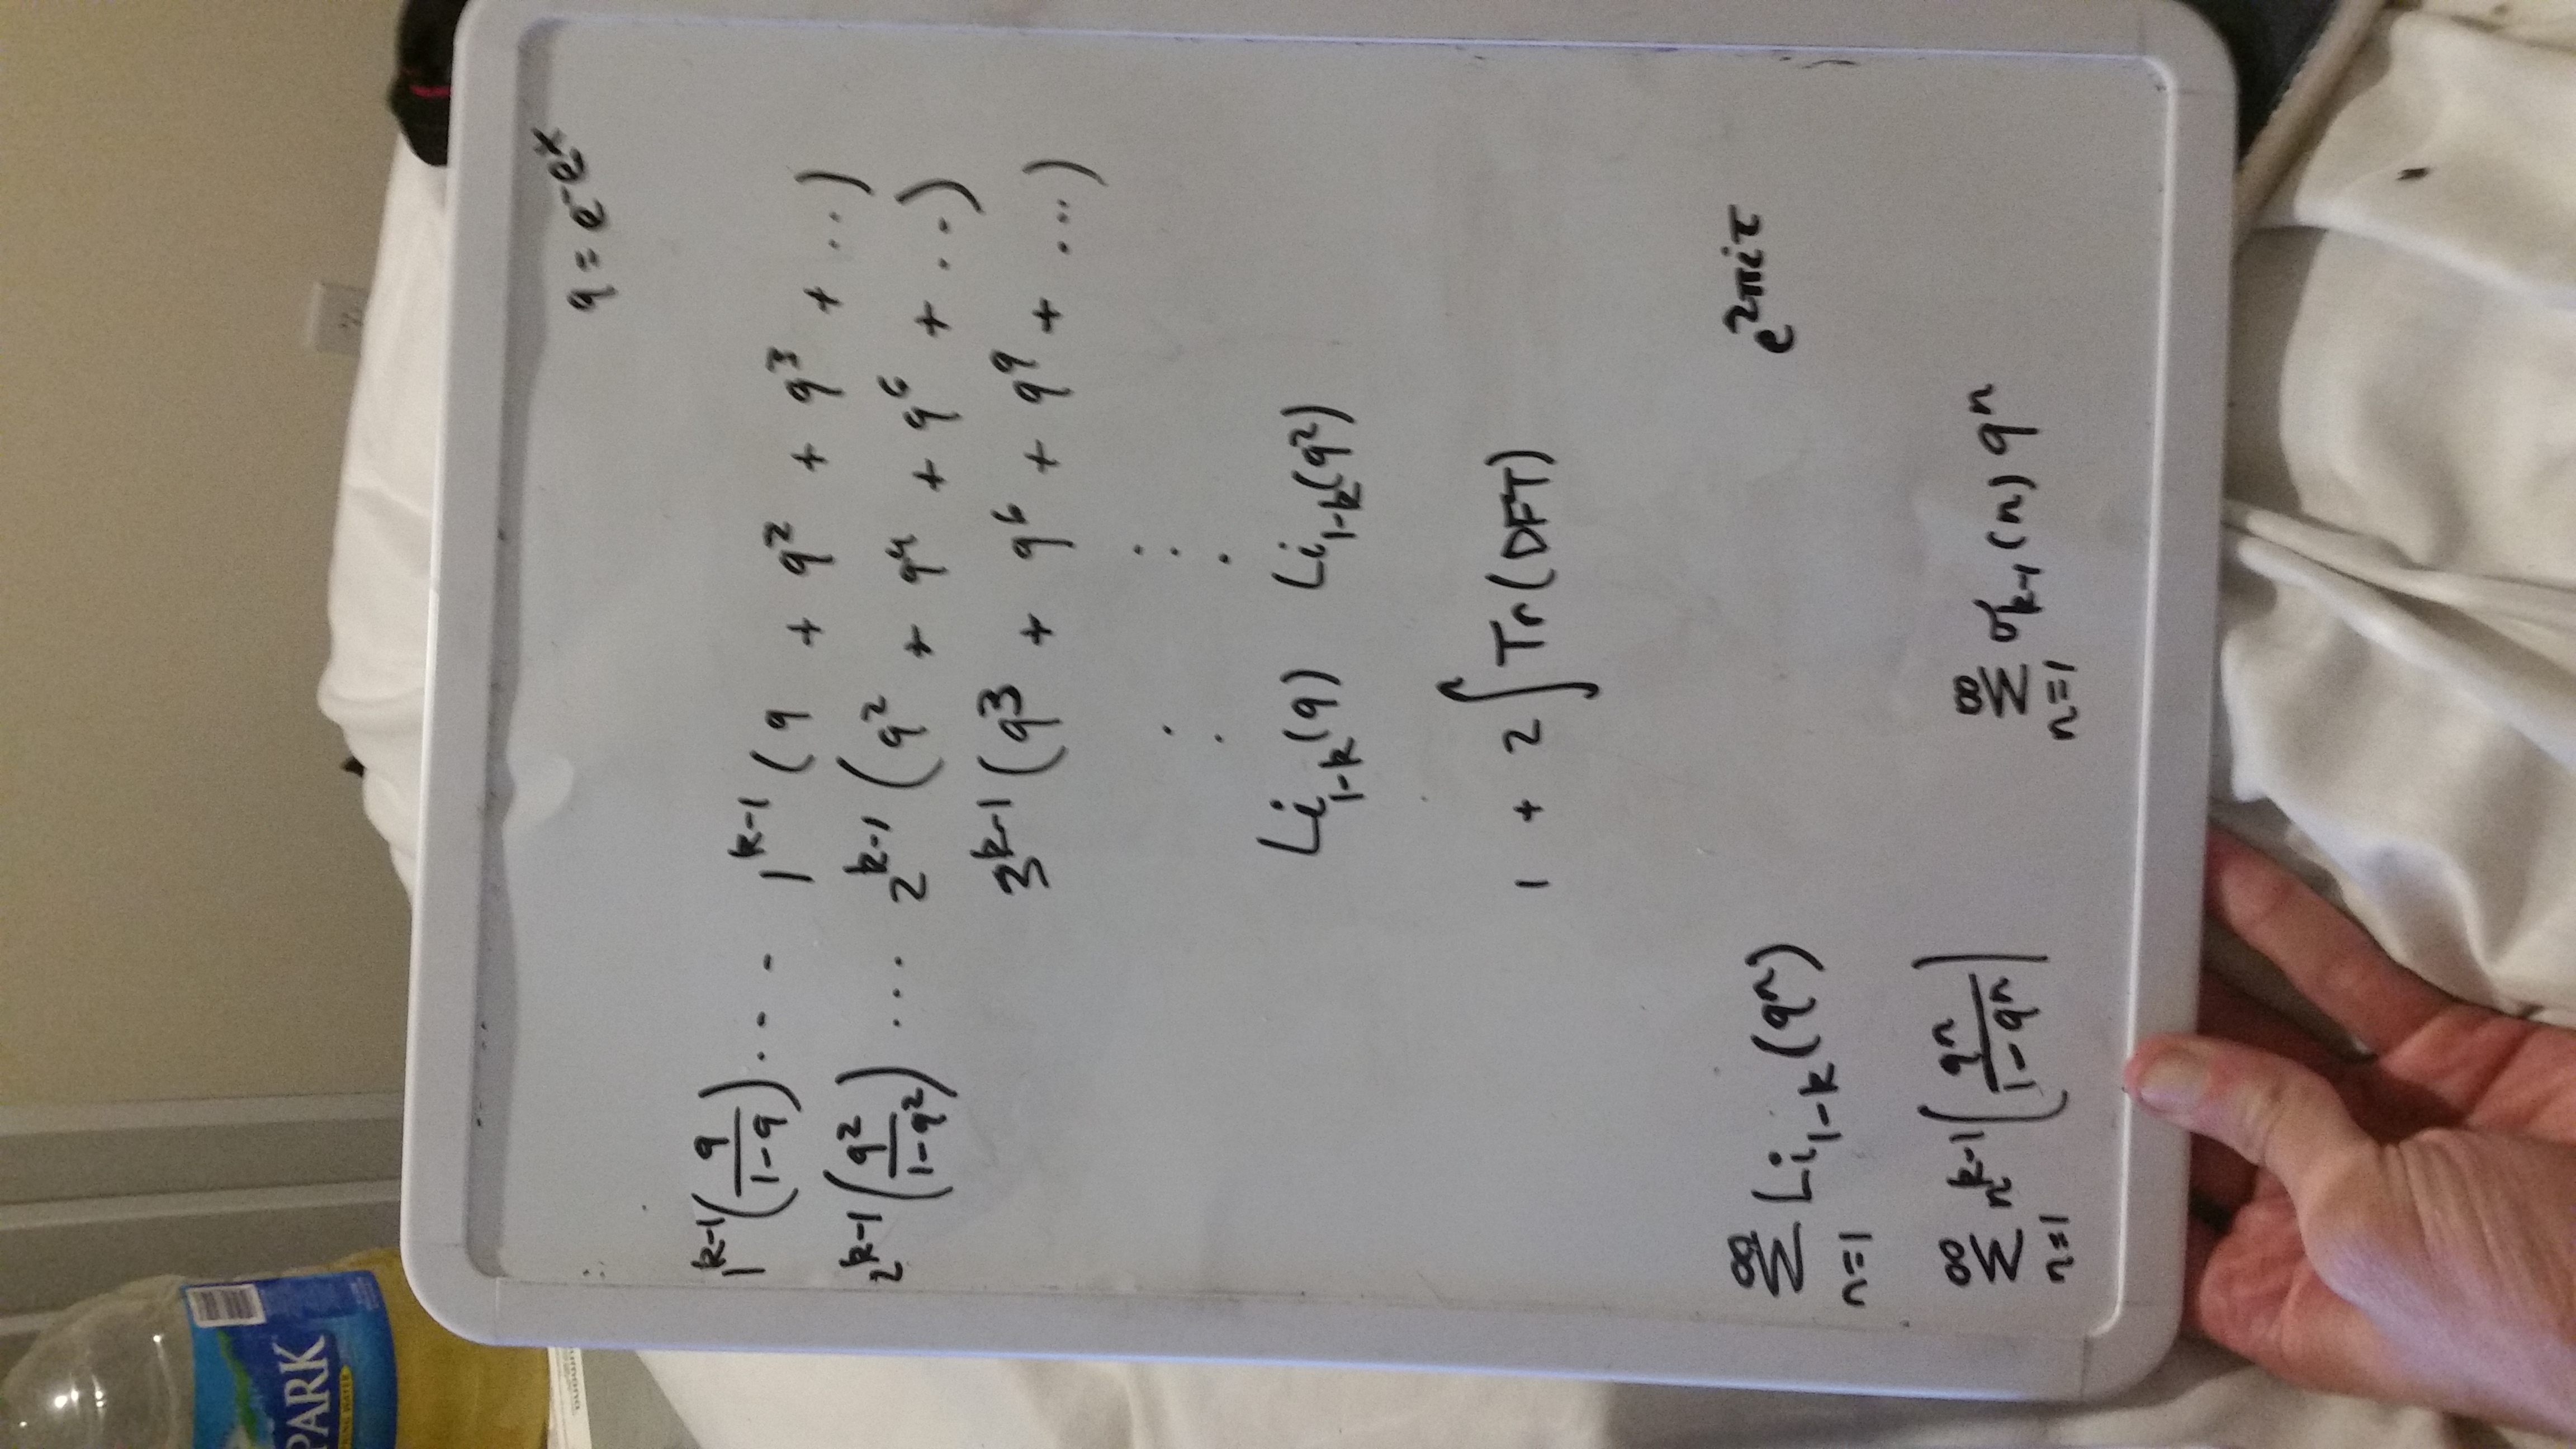 PARK
q = e^{-e^x}
1^{k-1}(q/(1-q)) . . . . 1^{k-1}(q + q^2 + q^3 + ...)
2^{k-1}(q^2/(1-q^2)) ... 2^{k-1}(q^2 + q^4 + q^6 + ...)
3^{k-1}(q^3 + q^6 + q^9 + ...)
Li_{1-k}(q) Li_{1-k}(q^2)
1 + 2∫Tr(DFT)
∑_{n=1}^{∞} Li_{1-k}(q^n) e^{2πiτ}
∑_{n=1}^{∞} n^{k-1}(q^n/(1-q^n)) ∑_{n=1}^{∞} σ_{k-1}(n) q^n